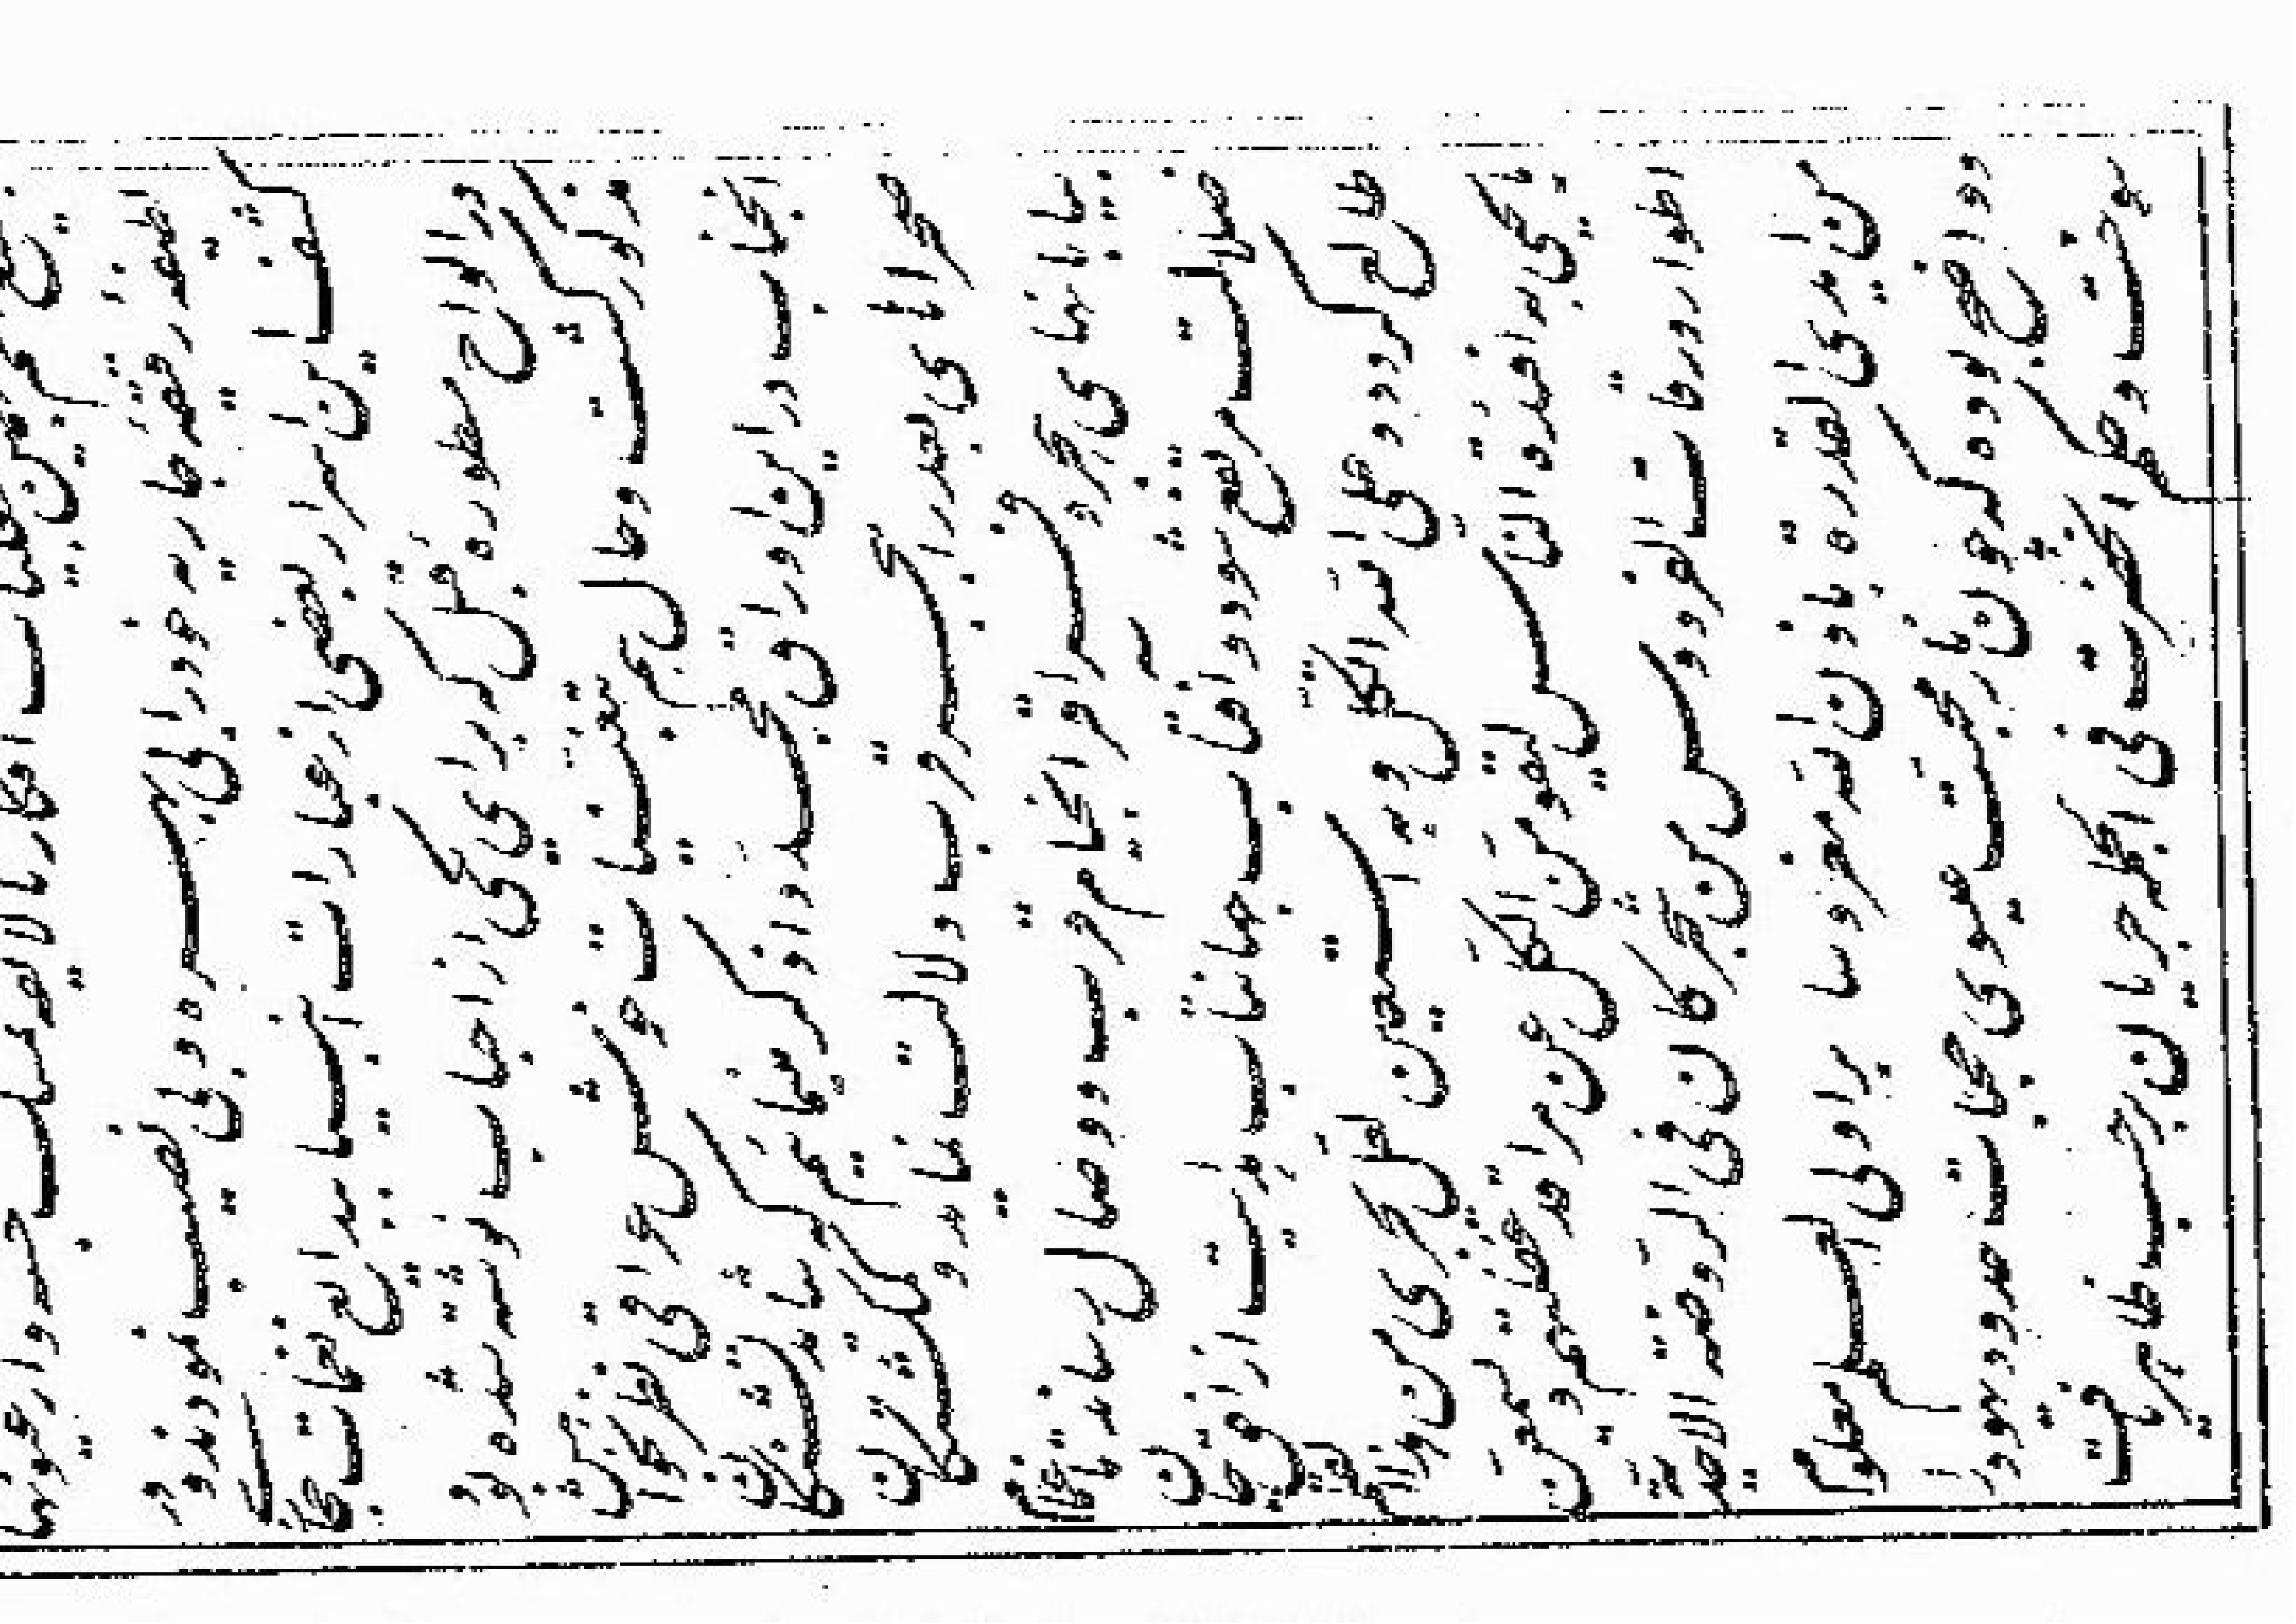 این اسرار بعضی از عبارات انبیا بدایع نغمات
در الواح مسطوره قبل که برای یکی از احباب نوشته شده بود
مذکور گشت و حال هم بتغنیات خوش عراقی نظر بخواهش
آنجناب در این اوراق مجدد ذکر مینمائیم که شاید تشنگان
صحراهای بعد را ببحر قرب دلالت نماید و گمگشتگان
بیابانهای هجر و فراق را بخیام قرب و وصال رساند تا غمام
ضلالت مرتفع شود و آفتاب جهانتاب هدایت از افق جان
طالع گردد و علی الله اتکل و به استعین لعل یجری من هذا القلم
ما یحیی به افئدة الناس لیقومن الکل عن مراقد غفلتهم و یسمعن
اطوار ورقات الفردوس من شجر کان فی الروضة الاحدیة
من ایدی القدرة باذن الله مغروسا بر اولی العلم معلوم
و واضح بوده که چون نار محبت عیسوی حجبات حدود یهود را
سوخت و حکم آنحضرت فی الجمله جریان بر حسب ظاهر یافت